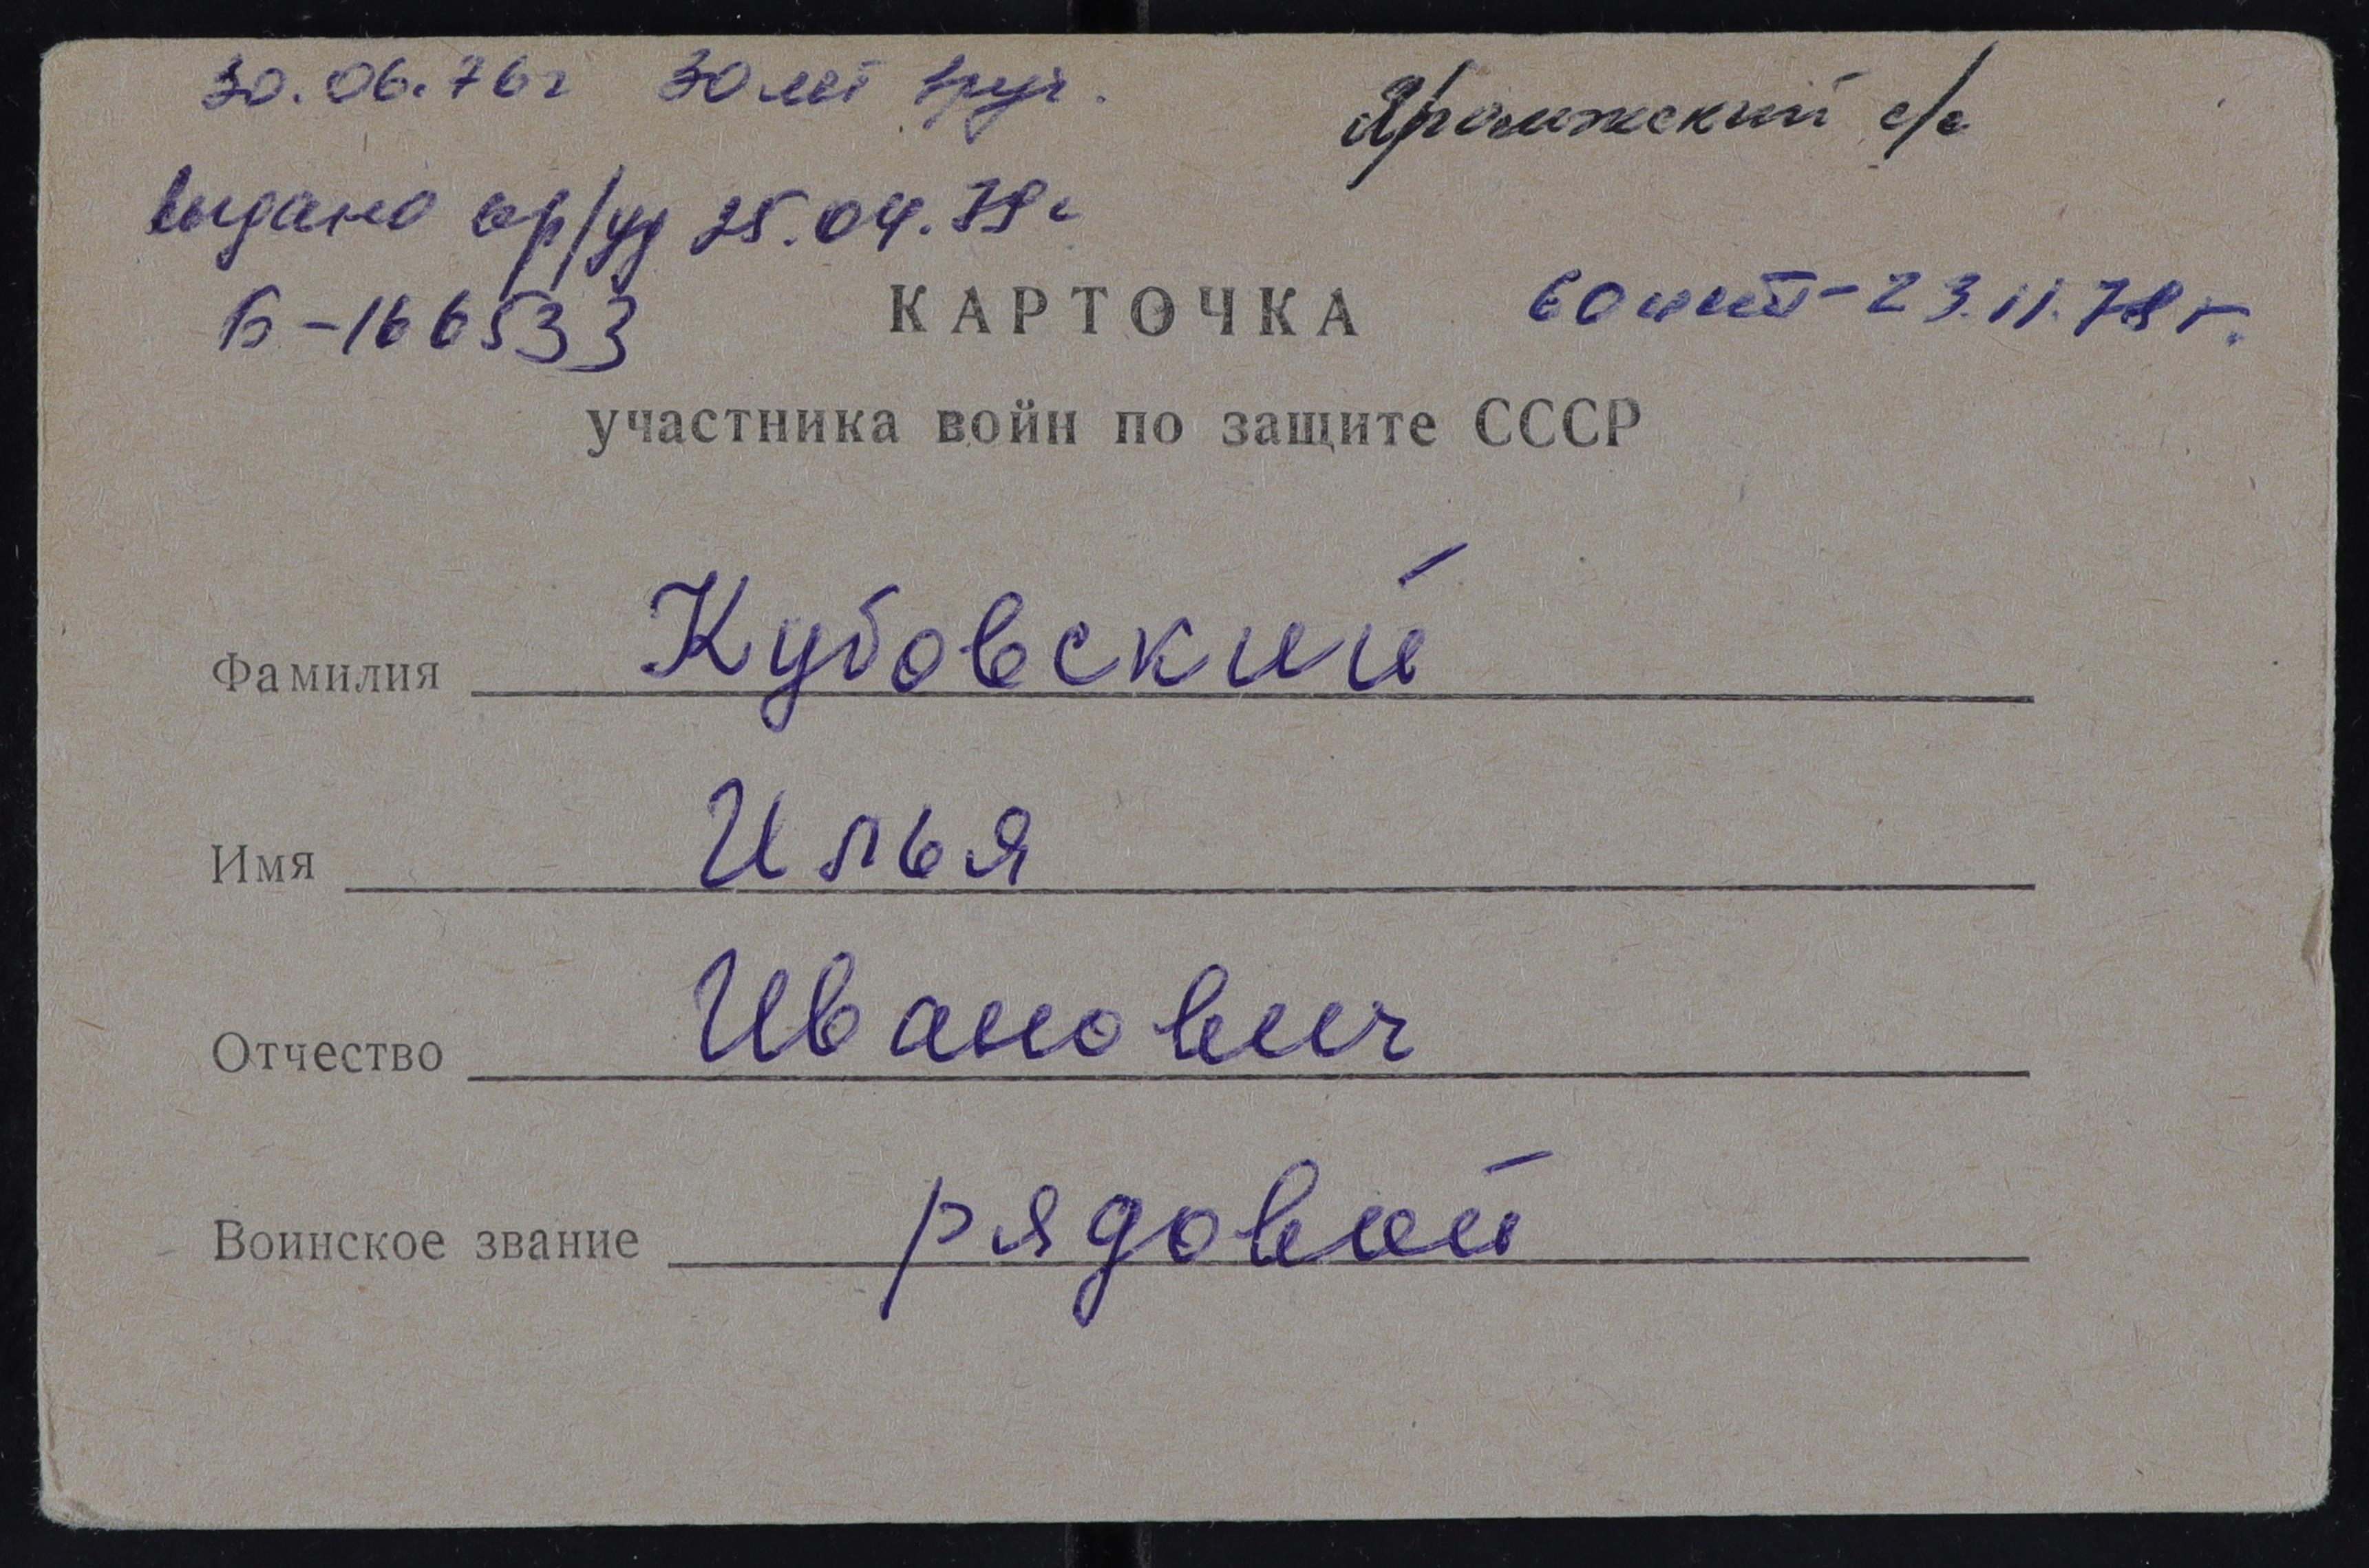 30.06.76г 30 лет вруч.
Яромжский с/с
выдано ор/уд 25.04.79г
Б-166533
КАРТОЧКА
60 лет-23.11.78г.
участника войн по защите СССР
Фамилия Кубовский
Имя Илья
Отчество Иванович
Воинское звание рядовой